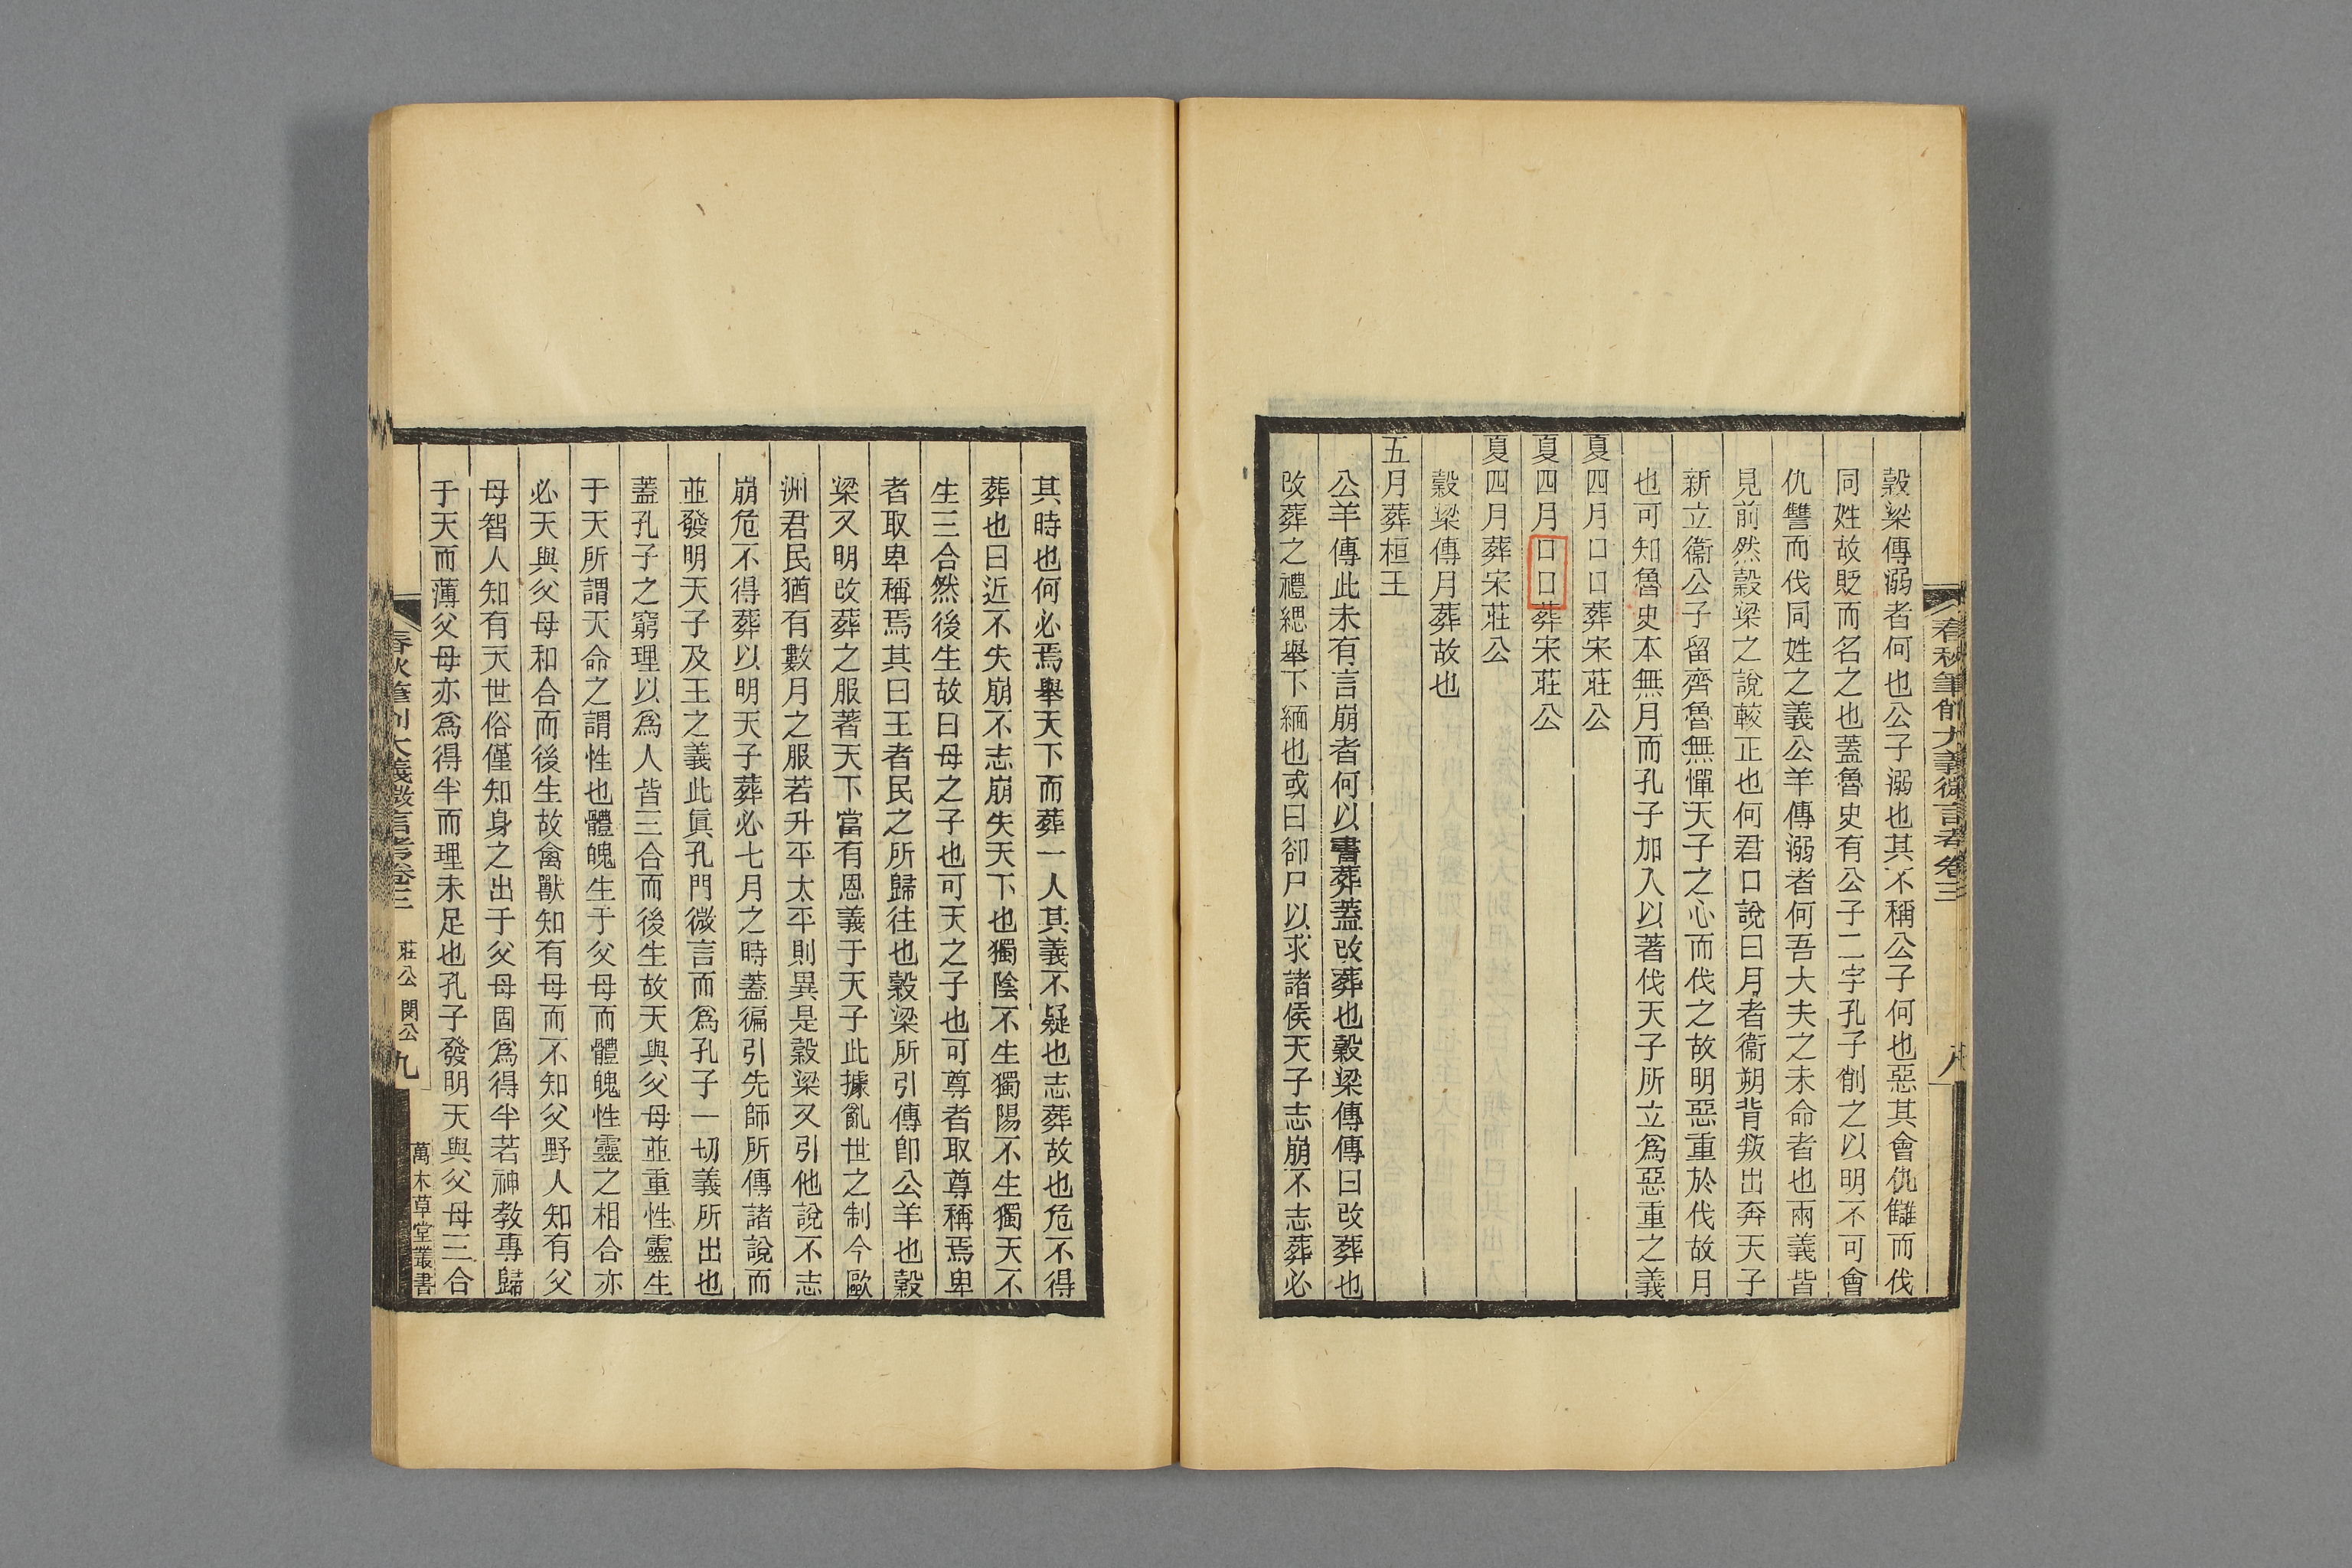 春秋筆削大義微言考卷三
八
穀梁傳溺者何也公子溺也其不稱公子何也惡其會仇讎而伐
同姓故貶而名之也蓋魯史有公子二字孔子削之以明不可會
仇讐而伐同姓之義公羊傳溺者何吾大夫之未命者也兩義皆
見前然穀梁之說較正也何君口說曰月者衞朔背叛出奔天子
新立衞公子留齊魯無憚天子之心而伐之故明惡重於伐故月
也可知魯史本無月而孔子加入以著伐天子所立爲惡重之義
夏四月口口葬宋莊公
夏四月口口葬宋莊公
夏四月葬宋莊公
穀梁傳月葬故也
五月葬桓王
公羊傳此未有言崩者何以書葬蓋改葬也穀梁傳傳曰改葬也
改葬之禮緦舉下緬也或曰卻尸以求諸侯天子志崩不志葬必
其時也何必焉舉天下而葬一人其義不疑也志葬故也危不得
葬也曰近不失崩不志崩失天下也獨陰不生獨陽不生獨天不
生三合然後生故曰母之子也可天之子也可尊者取尊稱焉卑
者取卑稱焉其曰王者民之所歸往也穀梁所引傳卽公羊也穀
梁又明改葬之服著天下當有恩義于天子此據亂世之制今歐
洲君民猶有數月之服若升平太平則異是穀梁又引他說不志
崩危不得葬以明天子葬必七月之時蓋徧引先師所傳諸說而
並發明天子及王之義此眞孔門微言而爲孔子一切義所出也
蓋孔子之窮理以爲人皆三合而後生故天與父母並重性靈生
于天所謂天命之謂性也體魄生于父母而體魄性靈之相合亦
必天與父母和合而後生故禽獸知有母而不知父野人知有父
母智人知有天世俗僅知身之出于父母固爲得半若神教專歸
于天而薄父母亦爲得半而理未足也孔子發明天與父母三合
春秋筆削大義微言考卷三
莊公 閔公
九
萬木草堂叢書